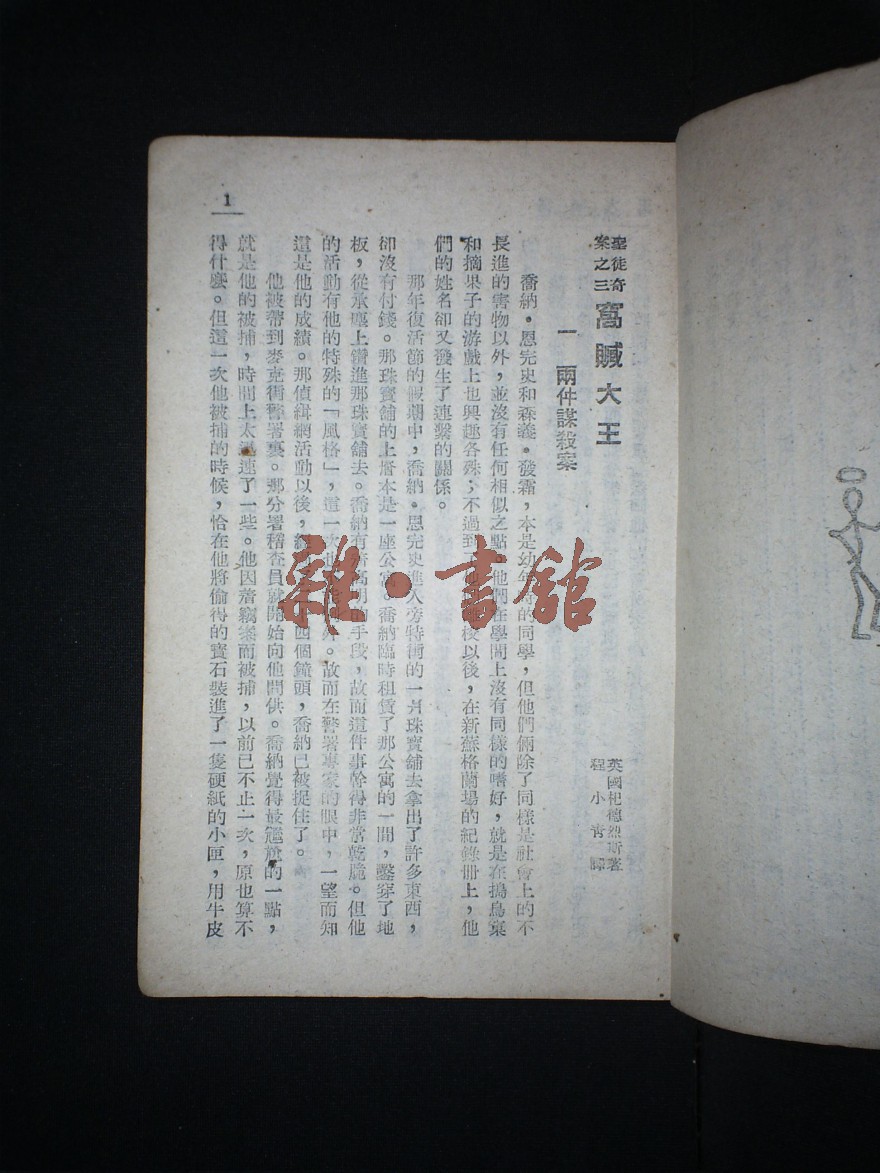 聖徒奇
案之三
窩贓大王
英國杞德烈斯著
程小青譯
一 兩件謀殺案
喬納。恩完史和森義。發霜,本是幼年時的同學,但他們倆除了同樣是社會上的不
長進的害物以外,並沒有任何相似之點他們在學問上沒有同樣的嗜好,就是在搗鳥窠
和摘果子的游戲上也興趣各殊;不過到了 以後,在新蘇格蘭場的紀錄冊上,他
們的姓名卻又發生了連繫的關係。
那年復活節的假期中,喬納。恩完史進入旁特街的一爿珠寶舖去拿出了許多東西,
卻沒有付錢。那珠寶舖的上層本是一座公寓。喬納臨時租賃了那公寓的一間,鑿穿了地
板,從承塵上鑽進那珠寶舖去。喬納有 高明的手段,故而這件事幹得非常乾脆。但他
的活動有他的特殊的「風格」,這一次 外。故而在警署專家的眼中,一望而知
這是他的成績。那偵緝網活動以後, 四個鐘頭,喬納已被捉住了。
他被帶到麥克街警署裏。那分署稽查員就開始向他問供。喬納覺得最尷尬的一點,
就是他的被捕,時間上太迅速了一些。他因着竊案而被捕,以前已不止一次,原也算不
得什麼。但這一次他被捕的時候,恰在他將偷得的寶石裝進了一隻硬紙的小匣,用牛皮
1
雜·書館